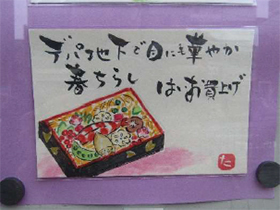 デパ地下で目にも華やか
春ちらし はお買上げ
た